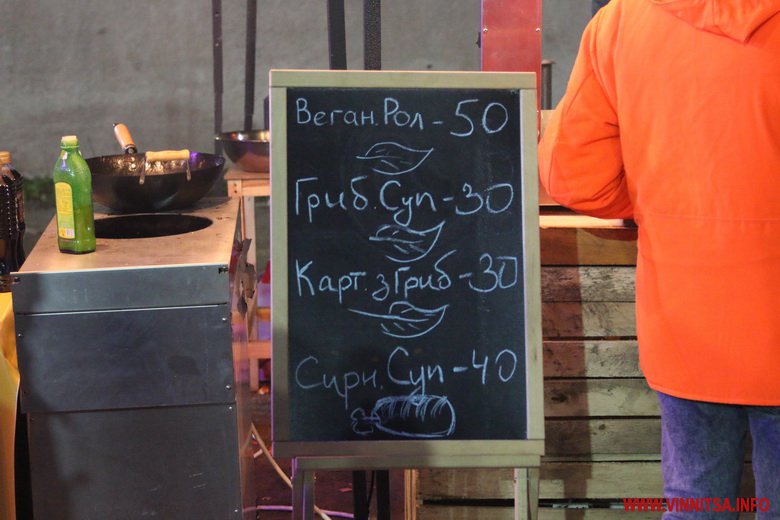 Веган.Рол - 50
Гриб.Суп - 30
Карт. з Гриб - 30
Сирн. Суп - 40
WWW.VINNITSA.INFO